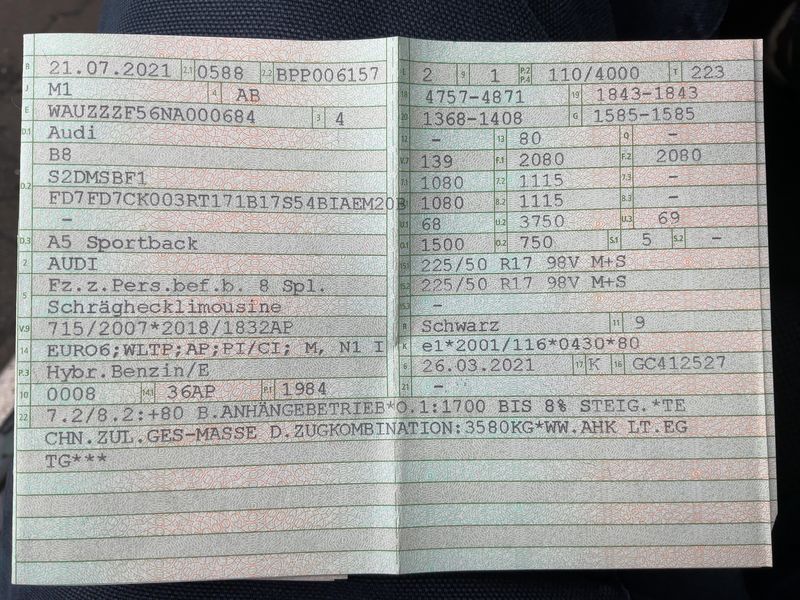 B 21.07.2021 2.1 0588 2.2 BPP006157
J M1 4 AB
E WAUZZZF56NA000684 3 4
D.1 Audi
B8
D.2 S2DMSBF1
FD7FD7CK003RT171B17S54BIAEM20B
-
D.3 A5 Sportback
2 AUDI
5 Fz.z.Pers.bef.b. 8 Spl.
Schräghecklimousine
V.9 715/2007*2018/1832AP
14 EURO6;WLTP;AP;PI/CI; M, N1 I
P.3 Hybr.Benzin/E
10 0008 14.1 36AP P.1 1984
L 2 9 1 P.2 P.4 110/4000 T 223
18 4757-4871 19 1843-1843
20 1368-1408 G 1585-1585
12 - 13 80 Q -
V.7 139 F.1 2080 F.2 2080
7.1 1080 7.2 1115 7.3 -
8.1 1080 8.2 1115 8.3 -
U.1 68 U.2 3750 U.3 69
O.1 1500 O.2 750 S.1 5 S.2 -
15.1 225/50 R17 98V M+S
15.2 225/50 R17 98V M+S
-
R Schwarz 11 9
K e1*2001/116*0430*80
6 26.03.2021 17 K 16 GC412527
21 -
22 7.2/8.2:+80 B.ANHÄNGEBETRIEB*O.1:1700 BIS 8% STEIG.*TE
CHN.ZUL.GES-MASSE D.ZUGKOMBINATION:3580KG*WW.AHK LT.EG
TG***